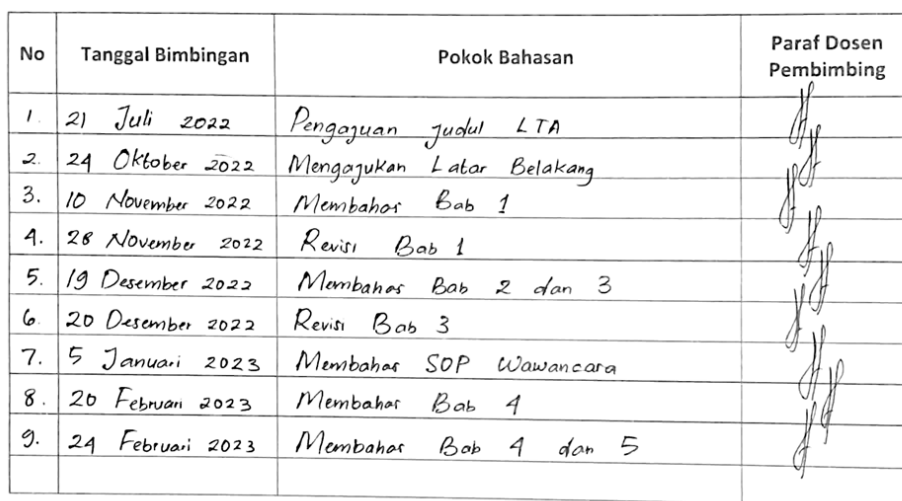 No Tanggal Bimbingan Pokok Bahasan Paraf Dosen Pembimbing
1. 21 Juli 2022 Pengajuan judul LTA
2. 24 Oktober 2022 Mengajukan Latar Belakang
3. 10 November 2022 Membahas Bab 1
4. 28 November 2022 Revisi Bab 1
5. 19 Desember 2022 Membahas Bab 2 dan 3
6. 20 Desember 2022 Revisi Bab 3
7. 5 Januari 2023 Membahas SOP Wawancara
8. 20 Februari 2023 Membahas Bab 4
9. 24 Februari 2023 Membahas Bab 4 dan 5